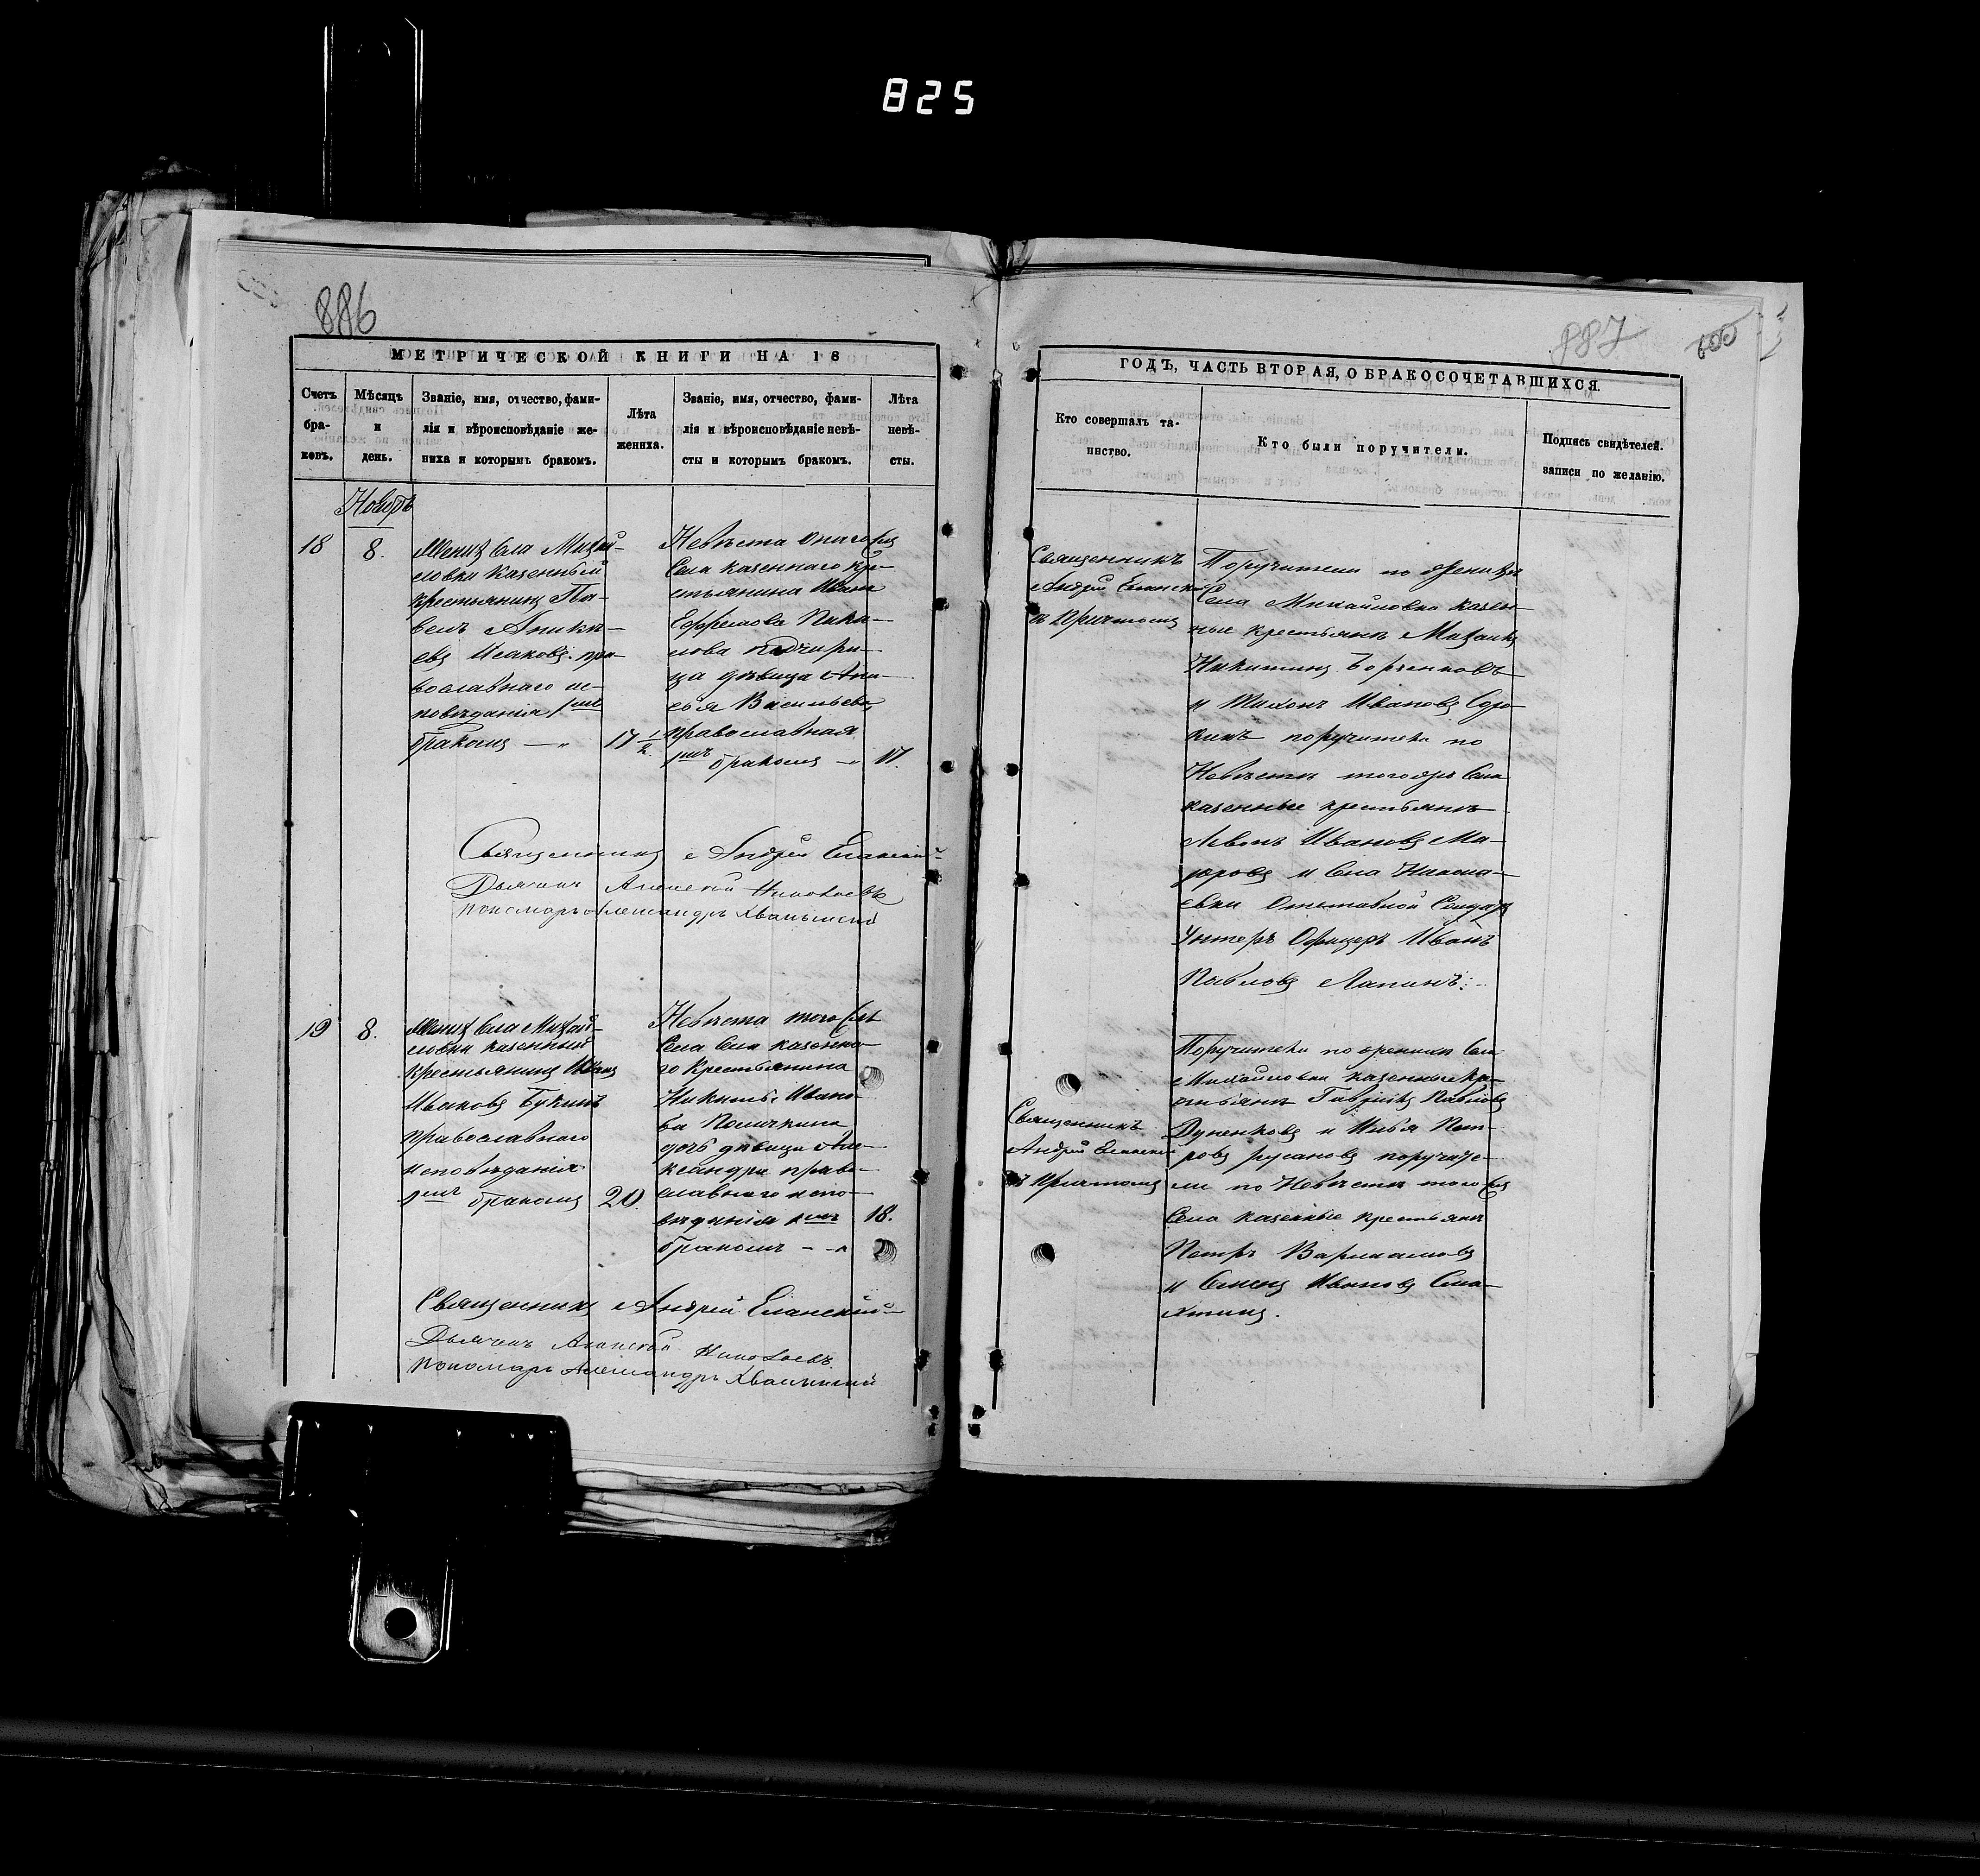 825
886
МЕТРИЧЕСКОЙ КНИГИ НА 18
Счетъ бра-ковъ.
Мѣсяцъ и день.
Званіе, имя, отчество, фами-
лія и вѣроисповѣданіе же-
ниха и которымъ бракомъ.
Лѣта жениха.
Званіе, имя, отчество, фами-
лія и вѣроисповѣданіе невѣ-
сты и которымъ бракомъ.
Лѣта невѣ-сты.
Ноябрь
18
8.
Женихъ Села Михай-
ловки казенный
крестьянинъ Па-
велъ Аникѣ-
евъ Исаковъ пра-
вославнаго ис-
повѣданія 1мъ
бракомъ
17 1/2
Невѣста онаго же
Села казеннаго кре-
стьянина Ивана
Ефремова
падчери-
ца дѣвица Ани-
сья Васильева
православная
1мъ бракомъ
17.
Священникъ Андрей Еланскій
Дьячекъ Алексей Николаевъ
пономарь Александръ Хвалынскій
19
8.
Женихъ Села Михай-
ловки казенный
крестьянинъ Иванъ
Ивановъ Букинъ
православнаго
исповѣданія
1мъ бракомъ
20.
Невѣста того же
Села казенна-
го крестьянина
Никиты Ивано-
ва
дочь дѣвица Але-
ксандра право-
славнаго испо-
вѣданія 1мъ
бракомъ
18.
Священникъ Андрей Еланскій
Дьячекъ Алексей Николаевъ
пономарь Александръ Хвалынскій
887
ГОДЪ, ЧАСТЬ ВТОРАЯ, О БРАКОСОЧЕТАВШИХСЯ.
Кто совершалъ та-
инство.
Кто были поручители.
Подпись свидѣтелей.
записи по желанію.
Священникъ
Андрей Еланскій
съ Причтомъ
Поручители по Женихѣ
Села Михайловки казен-
ные крестьяне Михаилъ
Никитинъ Борченковъ
и Тихонъ Ивановъ Соро-
кинъ поручители по
Невѣстѣ того же Села
казенные крестьяне
Левонъ Ивановъ Ма-
іоровъ и Села Никола-
евки Отставной Солдатъ
Унтеръ Офицеръ Иванъ
Павловъ Лапинъ.
Священникъ
Андрей Еланскій
съ Причтомъ
Поручители по женихѣ Села
Михайловки казенные кре-
стьяне Гаврилъ Павловъ
и Илья Пет-
ровъ Русановъ поручите-
ли по Невѣстѣ того же
Села казенные крестьяне
Петръ Варламовъ
и Семенъ Ивановъ Сла-